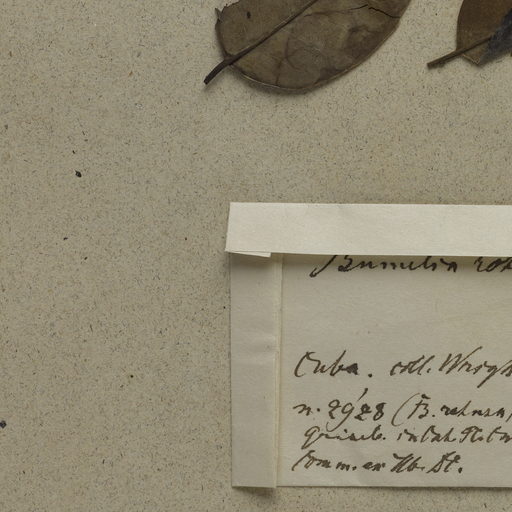 Bumelia
Cuba. coll. Wrigh
n. 2928 (B. retusa,
Griseb. in Cat. Pl. Cu
Comm. ex Hb. DC.